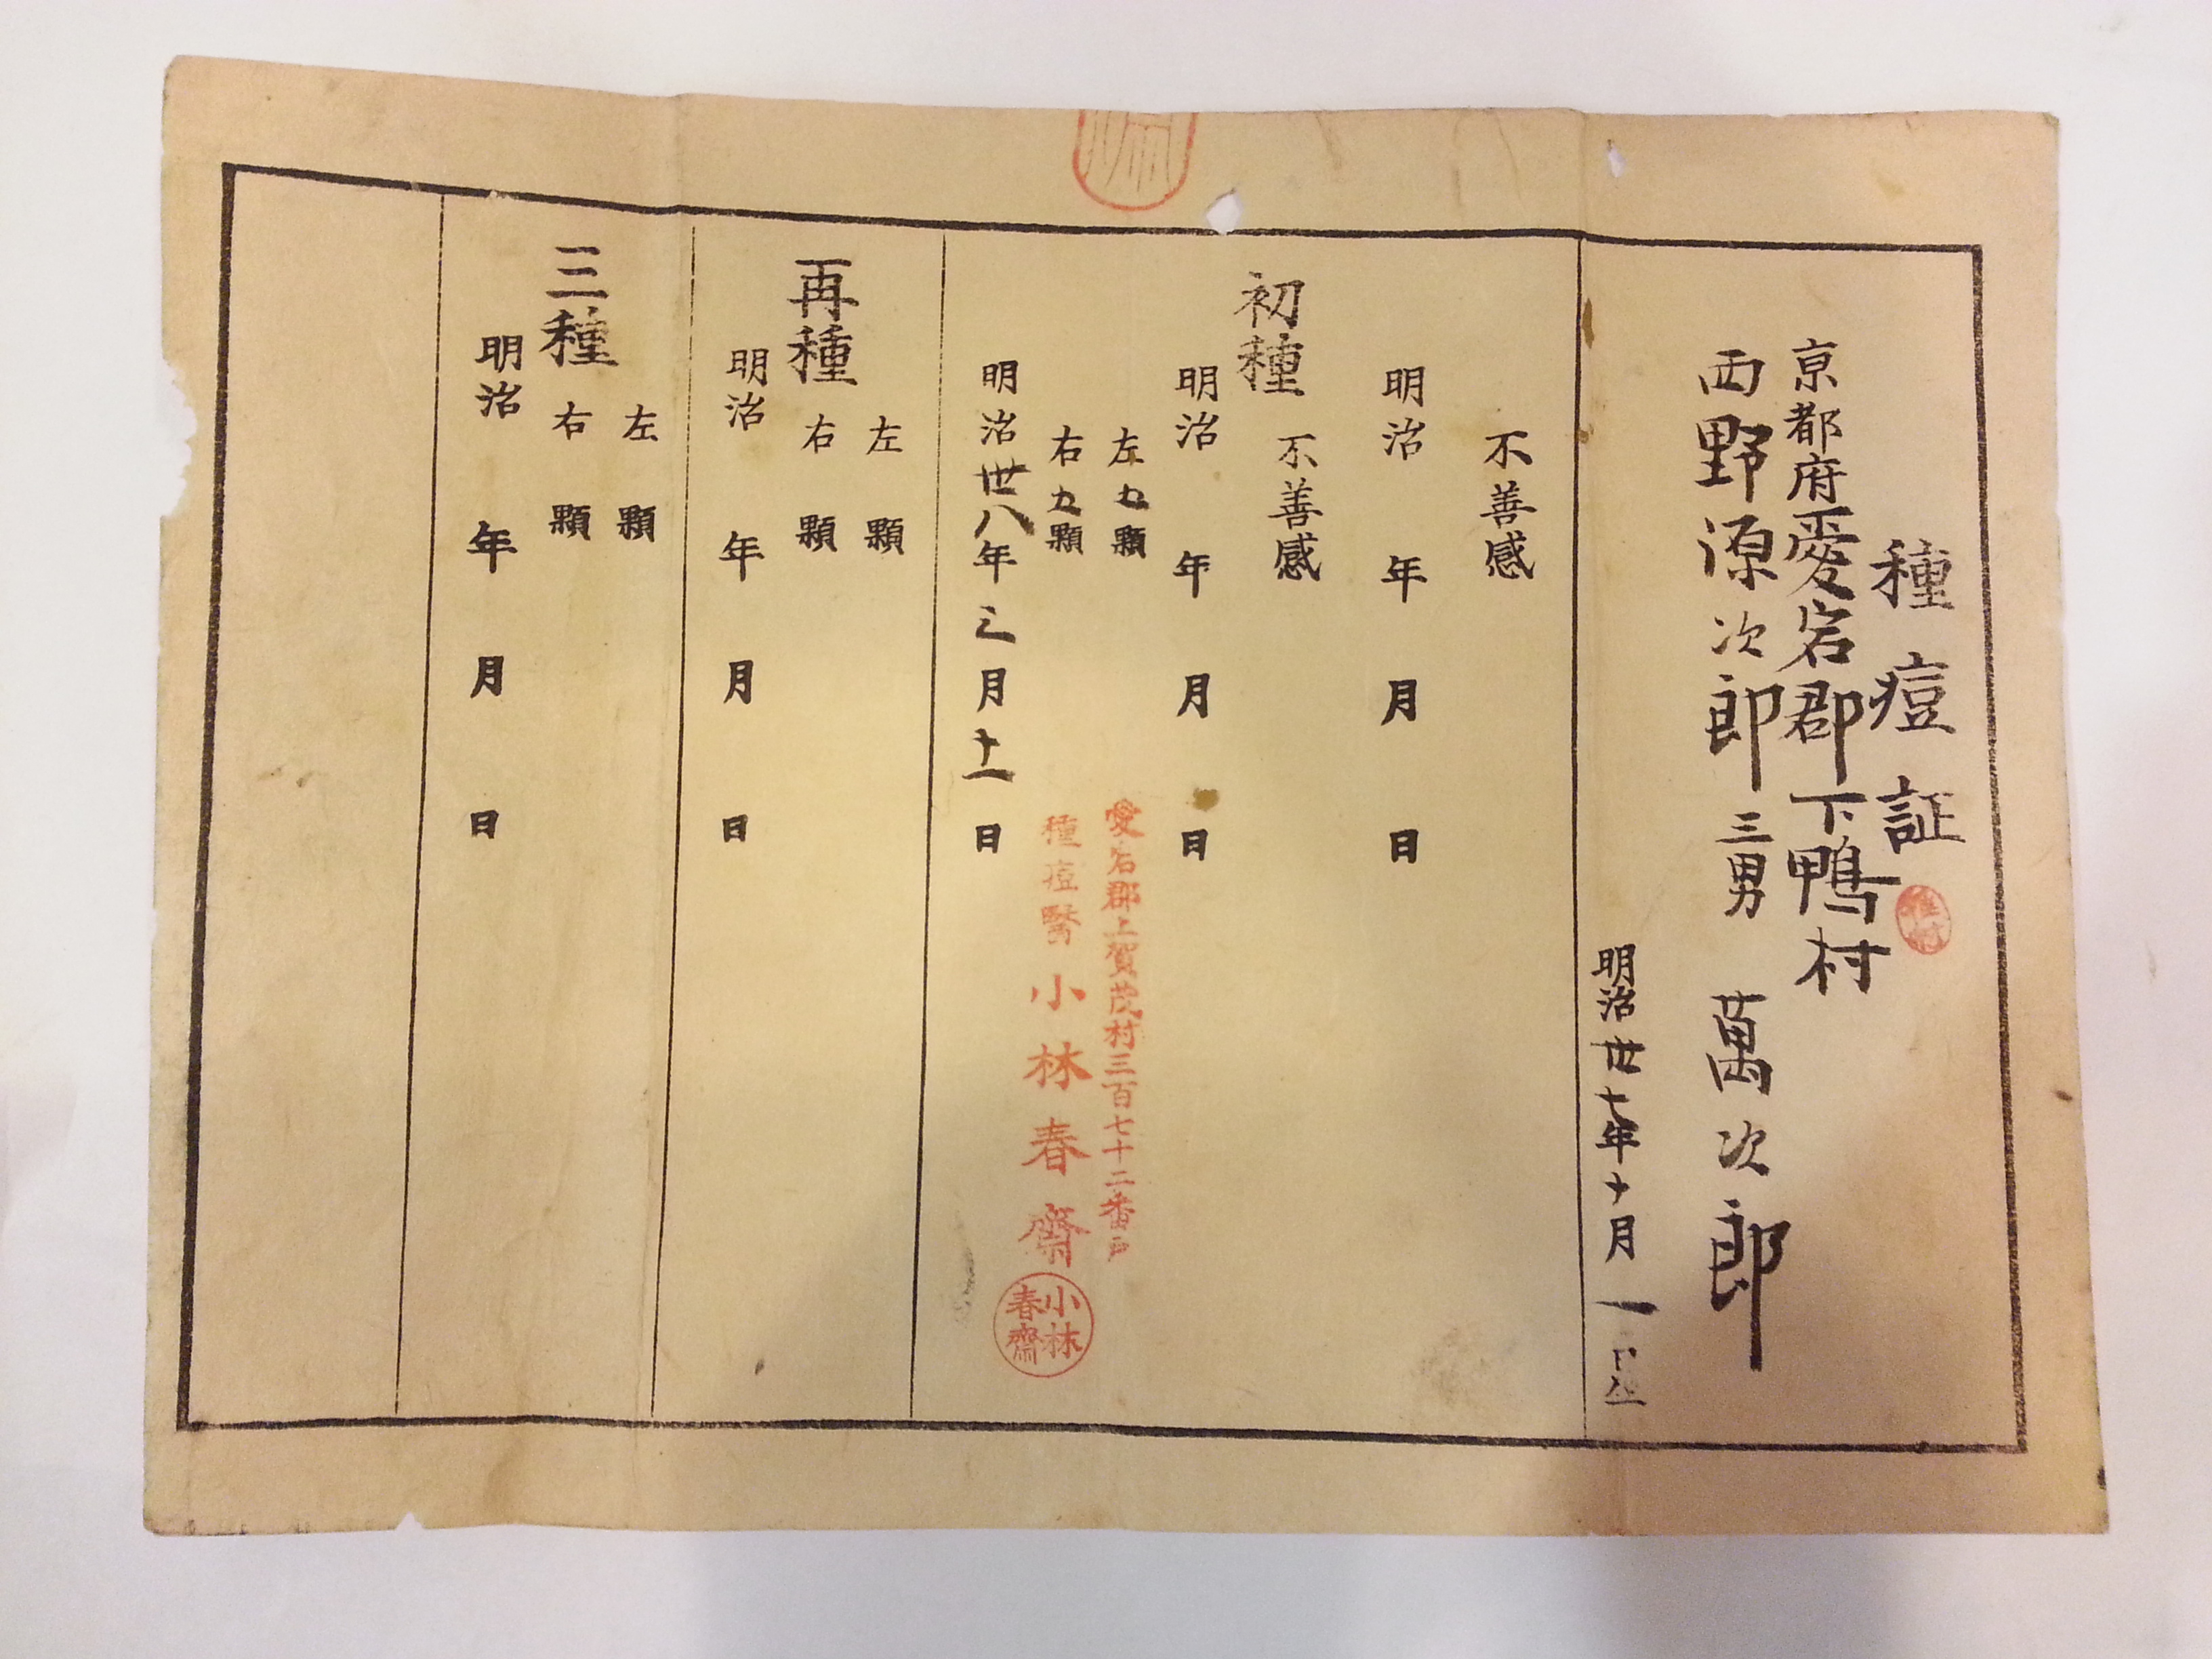 種痘証
京都府愛宕郡下鴨村
西野源次郎三男 萬次郎
明治卅七年十月一日生
不善感
明治 年 月 日
初種 不善感
明治 年 月 日
左 顆
右 顆
明治卅八年三月十一日
愛宕郡上賀茂村三百七十二番戸
種痘醫 小林春齋
小林
春齋
再種
左 顆
右 顆
明治 年 月 日
三種
左 顆
右 顆
明治 年 月 日